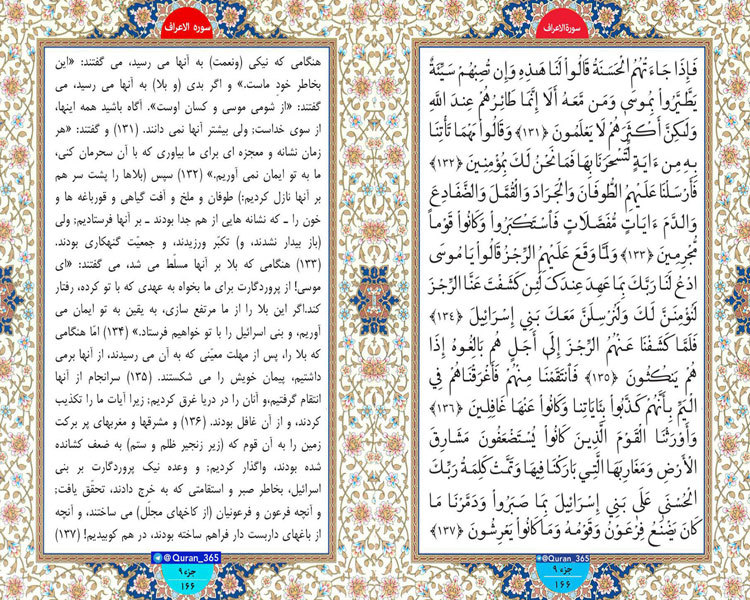 سورة الاعراف
فَإِذَا جَاءَتْهُمُ الْحَسَنَةُ قَالُوا لَنَا هَٰذِهِ وَإِن تُصِبْهُمْ سَيِّئَةٌ
يَطَّيَّرُوا بِمُوسَىٰ وَمَن مَّعَهُ أَلَا إِنَّمَا طَائِرُهُمْ عِندَ اللَّهِ
وَلَٰكِنَّ أَكْثَرَهُمْ لَا يَعْلَمُونَ ﴿۱۳۱﴾ وَقَالُوا مَهْمَا تَأْتِنَا
بِهِ مِن ءَايَةٍ لِّتَسْحَرَنَا بِهَا فَمَا نَحْنُ لَكَ بِمُؤْمِنِينَ ﴿۱۳۲﴾
فَأَرْسَلْنَا عَلَيْهِمُ الطُّوفَانَ وَالْجَرَادَ وَالْقُمَّلَ وَالضَّفَادِعَ
وَالدَّمَ ءَايَاتٍ مُّفَصَّلَاتٍ فَاسْتَكْبَرُوا وَكَانُوا قَوْماً
مُّجْرِمِينَ ﴿۱۳۳﴾ وَلَمَّا وَقَعَ عَلَيْهِمُ الرِّجْزُ قَالُوا يَا مُوسَى
ادْعُ لَنَا رَبَّكَ بِمَا عَهِدَ عِندَكَ لَئِن كَشَفْتَ عَنَّا الرِّجْزَ
لَنُؤْمِنَنَّ لَكَ وَلَنُرْسِلَنَّ مَعَكَ بَنِي إِسْرَائِيلَ ﴿۱۳۴﴾
فَلَمَّا كَشَفْنَا عَنْهُمُ الرِّجْزَ إِلَىٰ أَجَلٍ هُم بَالِغُوهُ إِذَا
هُمْ يَنكُثُونَ ﴿۱۳۵﴾ فَانتَقَمْنَا مِنْهُمْ فَأَغْرَقْنَاهُمْ فِي
الْيَمِّ بِأَنَّهُمْ كَذَّبُوا بِآيَاتِنَا وَكَانُوا عَنْهَا غَافِلِينَ ﴿۱۳۶﴾
وَأَوْرَثْنَا الْقَوْمَ الَّذِينَ كَانُوا يُسْتَضْعَفُونَ مَشَارِقَ
الْأَرْضِ وَمَغَارِبَهَا الَّتِي بَارَكْنَا فِيهَا وَتَمَّتْ كَلِمَةُ رَبِّكَ
الْحُسْنَىٰ عَلَىٰ بَنِي إِسْرَائِيلَ بِمَا صَبَرُوا وَدَمَّرْنَا مَا
كَانَ يَصْنَعُ فِرْعَوْنُ وَقَوْمُهُ وَمَا كَانُوا يَعْرِشُونَ ﴿۱۳۷﴾
@Quran_365
جزء ۹
۱۶۶
سوره الاعراف
هنگامی که نیکی (ونعمت) به آنها می رسید، می گفتند: «این
بخاطر خود ماست.» و اگر بدی (و بلا) به آنها می رسید، می
گفتند: «از شومی موسی و کسان اوست». آگاه باشید همه اینها،
از سوی خداست; ولی بیشتر آنها نمی دانند. (۱۳۱) و گفتند: «هر
زمان نشانه و معجزه ای برای ما بیاوری که با آن سحرمان کنی،
ما به تو ایمان نمی آوریم.» (۱۳۲) سپس (بلاها را پشت سر هم
بر آنها نازل کردیم:) طوفان و ملخ و آفت گیاهی و قورباغه ها و
خون را ـ که نشانه هایی از هم جدا بودند ـ بر آنها فرستادیم; ولی
(باز بیدار نشدند، و) تکبّر ورزیدند، و جمعیّت گنهکاری بودند.
(۱۳۳) هنگامی که بلا بر آنها مسلّط می شد، می گفتند: «ای
موسی! از پروردگارت برای ما بخواه به عهدی که با تو کرده، رفتار
کند.اگر این بلا را از ما مرتفع سازی، به یقین به تو ایمان می
آوریم، و بنی اسرائیل را با تو خواهیم فرستاد.» (۱۳۴) امّا هنگامی
که بلا را، پس از مهلت معیّنی که به آن می رسیدند، از آنها برمی
داشتیم، پیمان خویش را می شکستند. (۱۳۵) سرانجام از آنها
انتقام گرفتیم،و آنان را در دریا غرق کردیم; زیرا آیات ما را تکذیب
کردند، و از آن غافل بودند. (۱۳۶) و مشرقها و مغربهای پر برکت
زمین را به آن قوم که (زیر زنجیر ظلم و ستم) به ضعف کشانده
شده بودند، واگذار کردیم; و وعده نیک پروردگارت بر بنی
اسرائیل، بخاطر صبر و استقامتی که به خرج دادند، تحقّق یافت;
و آنچه فرعون و فرعونیان (از کاخهای مجلّل) می ساختند، و آنچه
از باغهای داربست دار فراهم ساخته بودند، در هم کوبیدیم! (۱۳۷)
@Quran_365
جزء ۹
۱۶۶